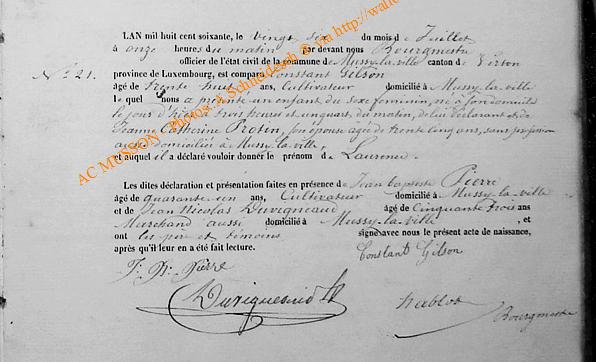 LAN mil huit cent soixante, le vingt six du mois de Juillet
à onze heures du matin par devant nous Bourgmestre
officier de l'état civil de la commune de Mussy-la-ville canton de Virton
N° 21. province de Luxembourg, est comparu Constant Gilson
âgé de trente huit ans, Cultivateur domicilié à Mussy-la-ville
le quel nous a présenté un enfant du sexe feminin, né à son domicile
le jour d'hier à trois heures et un quart du matin, de lui déclarant et de
Jeanne Catherine Protin, son épouse âgée de trente cinq ans, sans profession
aussi domiciliée à Mussy-la-ville,
et auquel il a déclaré vouloir donner le prénom de Laurence.
Les dites déclaration et présentation faites en présence de Jean baptiste Pierre
âgé de quarante un ans, Cultivateur domicilié à Mussy-la-ville
et de Jean Nicolas Duvigneaud âgé de Cinquante trois ans
Marchand aussi domicilié à Mussy-la-ville, et
ont les père et témoins signé avec nous le présent acte de naissance,
après qu'il leur en a été fait lecture. Constant Gilson
J. Bt. Pierre
Duvigneaud
Bourgmestre
AC MUSSON - Photos: F. Schneidesch @ via http://walte